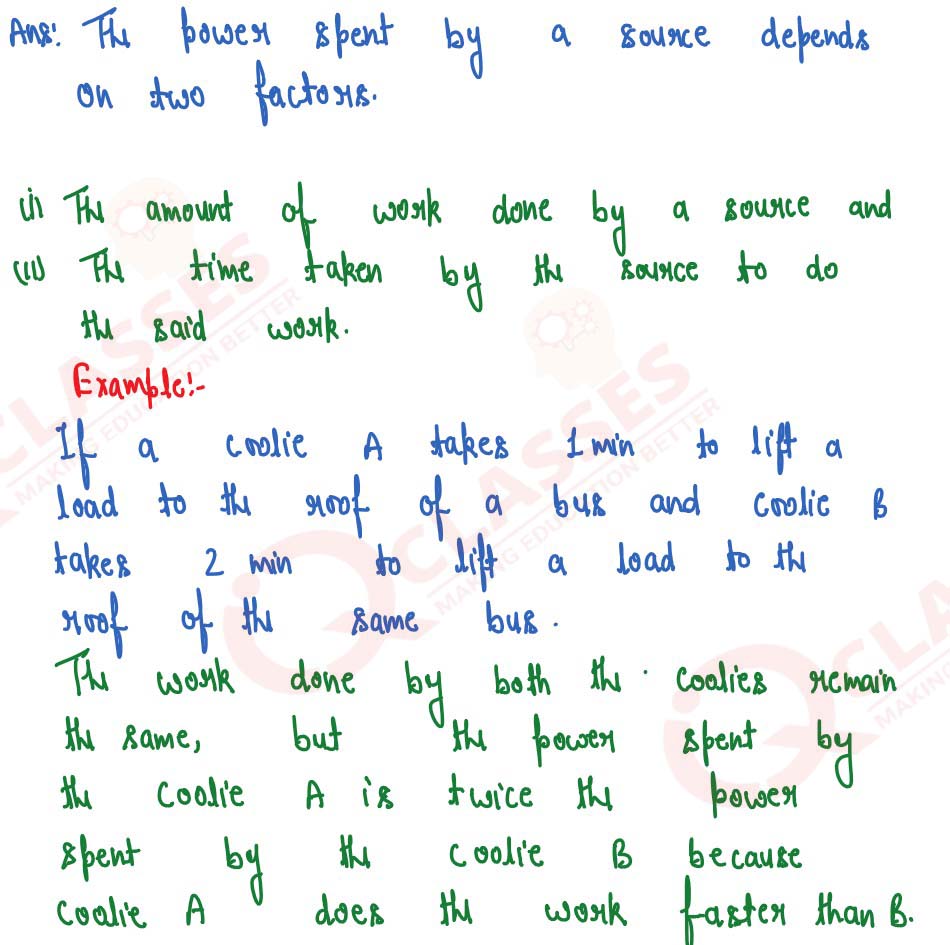 Ans: The power spent by a source depends
on two factors.
(i) The amount of work done by a source and
(ii) The time taken by the source to do
the said work.
Example:-
If a coolie A takes 1 min to lift a
load to the roof of a bus and coolie B
takes 2 min to lift a load to the
roof of the same bus.
The work done by both the coolies remain
the same, but the power spent by
the coolie A is twice the power
spent by the coolie B because
coolie A does the work faster than B.
CLASSES
MAKING EDUCATION BETTER
CLASSES
MAKING EDUCATION BETTER
CLA
MAKING